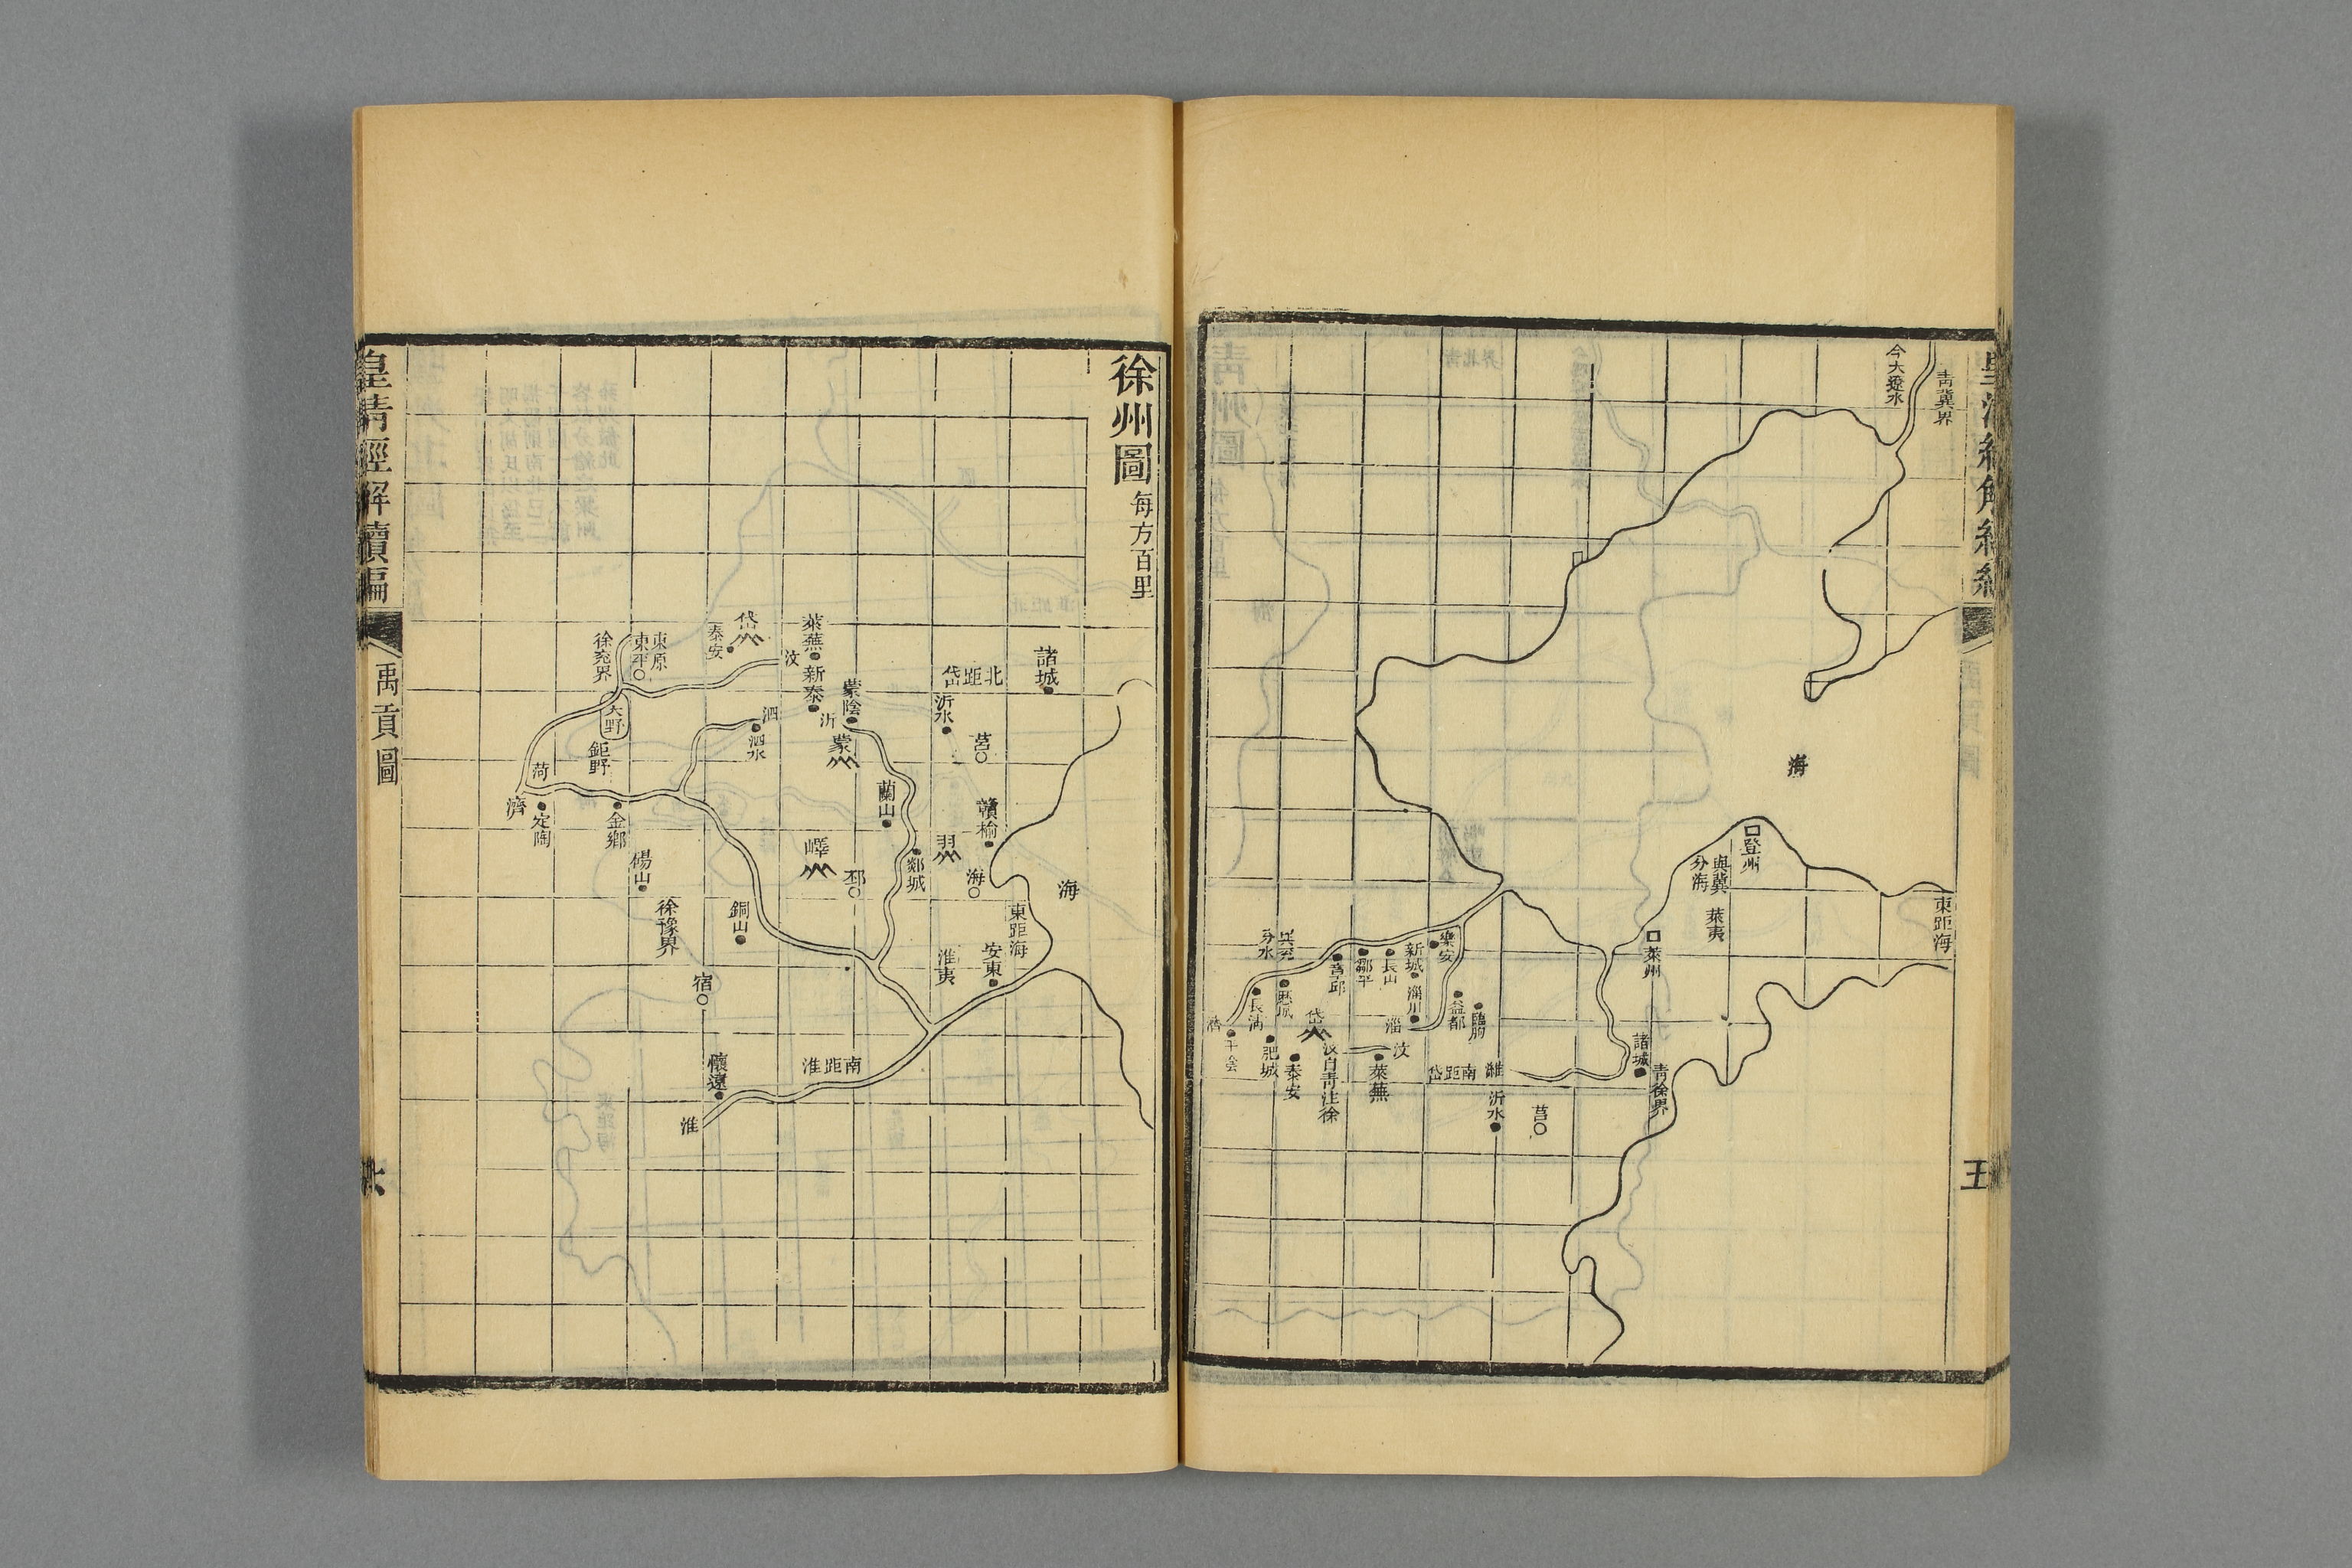 今大遼水
青冀界
海
登州
與冀
分海
萊夷
東距海
萊州
樂安
新城
長山
鄒平
章邱
分水
長清
肥城
岱
泰安
汶自青注徐
汶
萊蕪
淄川
淄
益都
臨朐
南距岱
濰
諸城
青徐界
沂水
莒
濟
平陰
徐州圖
每方百里
諸城
北距岱
沂水
莒
萊蕪
新泰
汶
岱
泰安
東原
東平
徐兗界
大野
鉅野
蒙陰
沂
蒙
泗
泗水
菏
濟
定陶
金鄉
碭山
徐豫界
蘭山
贛榆
羽
郯城
海
海
嶧
邳
銅山
東距海
安東
淮夷
宿
懷遠
南距淮
淮
皇清經解續編
禹貢圖
六